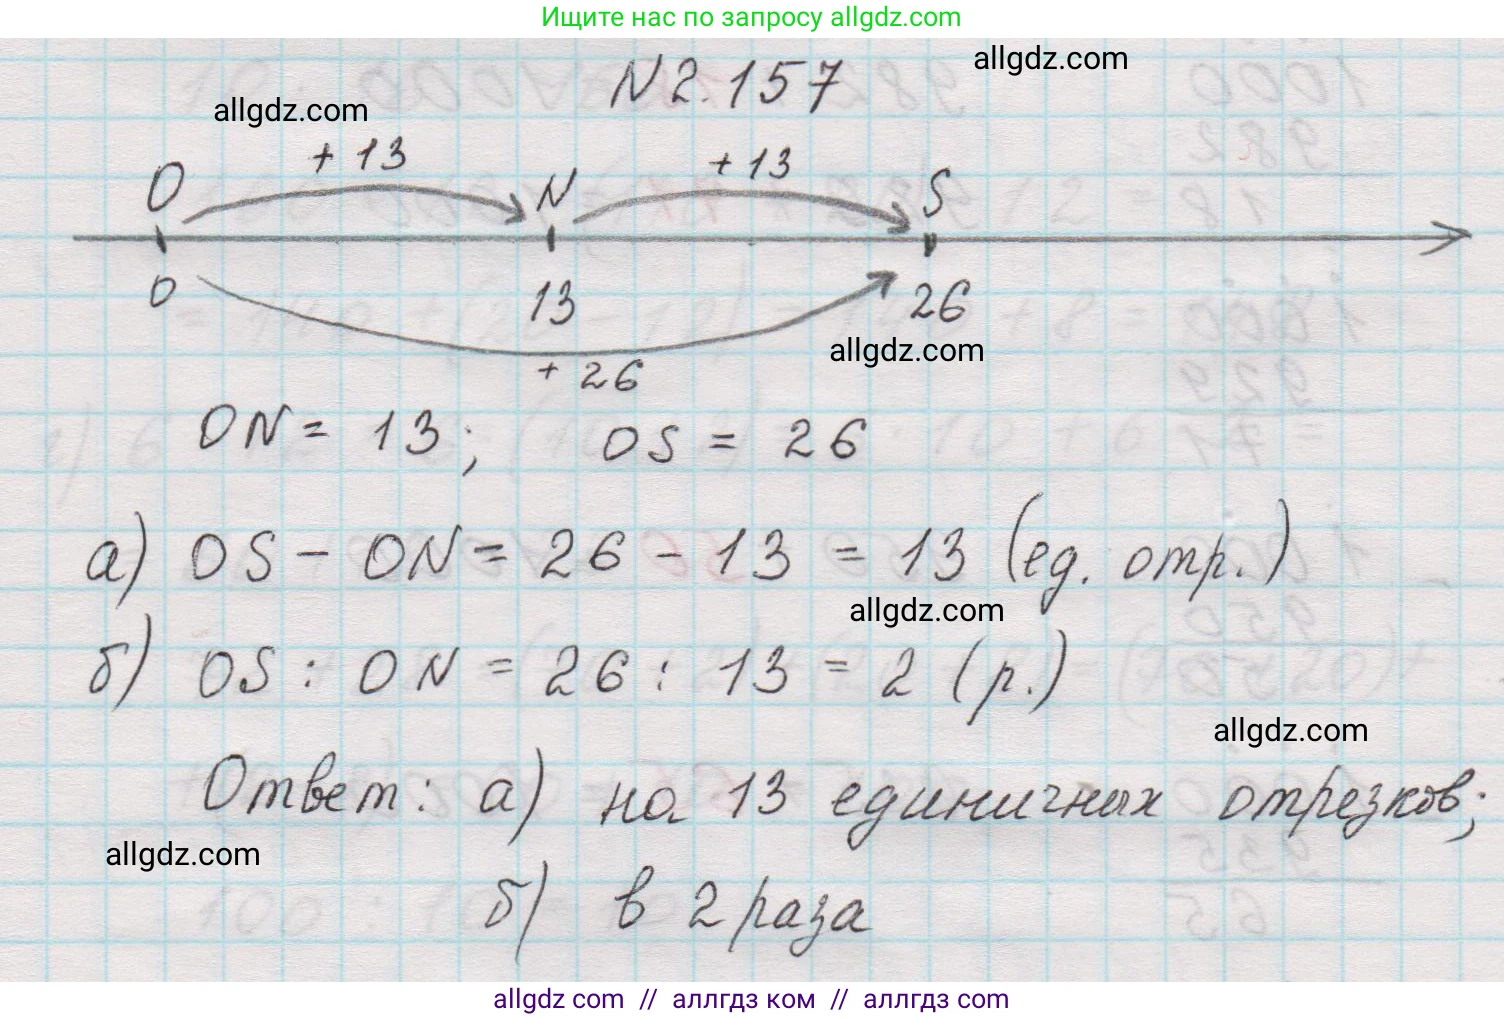 Ищите нас по запросу allgdz.com
allgdz.com
N 2.157
allgdz.com
+ 13 + 13
O N S
0 13 26
allgdz.com
+ 26
ON = 13; OS = 26
а) OS - ON = 26 - 13 = 13 (ед. отр.)
allgdz.com
б) OS : ON = 26 : 13 = 2 (р.)
allgdz.com
Ответ: а) на 13 единичных отрезков;
allgdz.com
б) в 2 раза
allgdz com // аллгдз ком // аллгдз com